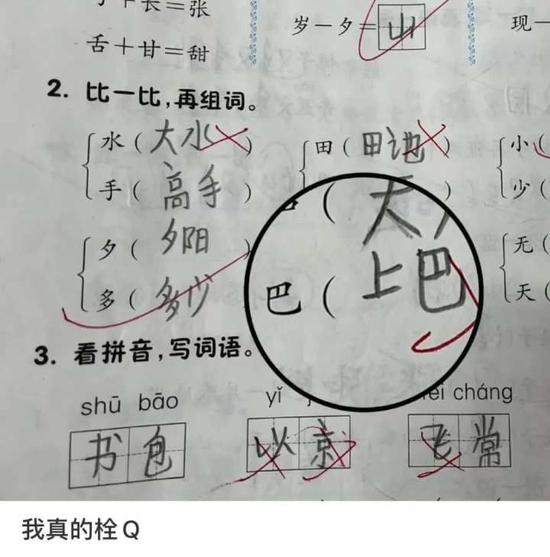 ＋长＝张 岁－夕＝山 现－
舌＋甘＝甜
2. 比一比，再组词。
水（大水） 田（田地） 小（
手（高手） （大） 少（
夕（夕阳） 巴（上巴 无（
多（多少） 天（
3. 看拼音，写词语。
shū bāo yǐ cháng
书包 以京 飞常
我真的栓Q